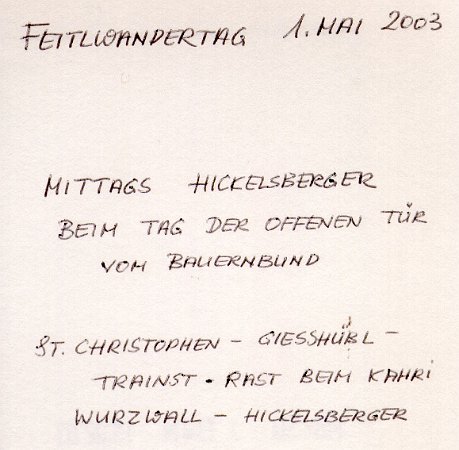 FEITLWANDERTAG 1. MAI 2003
MITTAGS HICKELSBERGER
BEIM TAG DER OFFENEN TÜR
VOM BAUERNBUND
ST. CHRISTOPHEN - GIESSHÜBL -
TRAINST. RAST BEIM KAHRI
WURZWALL - HICKELSBERGER